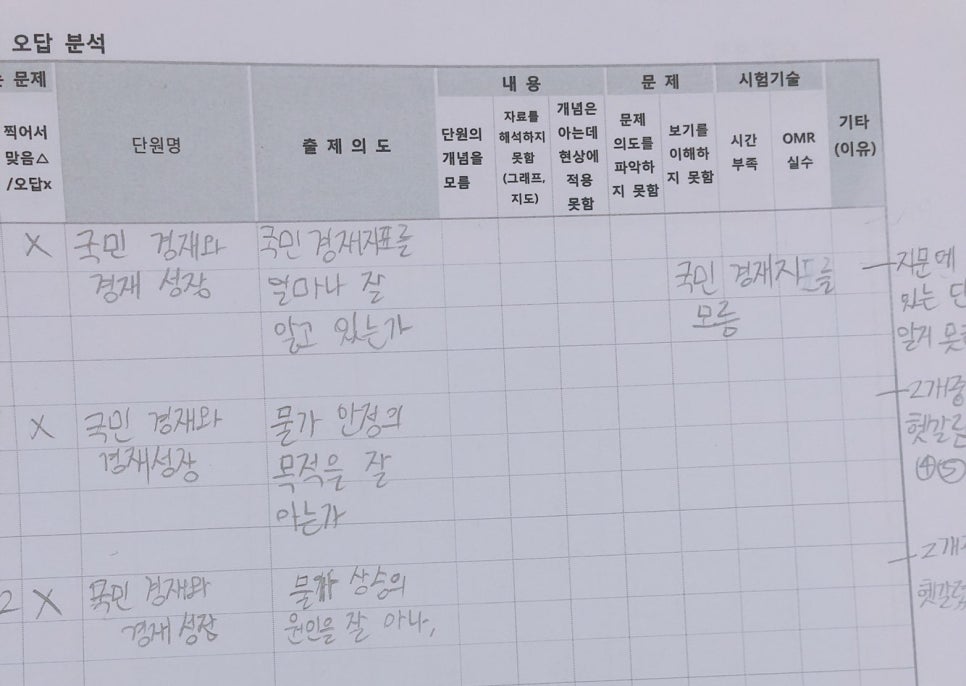 오답 분석
문제
내 용
문 제
시험기술
찍어서
맞음△
/오답x
단원명
출 제 의 도
단원의
개념을
모름
자료를
해석하지
못함
(그래프,
지도)
개념은
아는데
현상에
적용
못함
문제
의도를
파악하
지 못함
보기를
이해하
지 못함
시간
부족
OMR
실수
기타
(이유)
X
국민 경재와
경재 성장
국민 경재지표를
얼마나 잘
알고 있는가
국민 경재지표를
모름
지문에
있는
알지
X
국민 경재와
경재성장
물가 안정의
목적을 잘
아는가
2개중
헷갈림
④⑤
2 X
국민 경재와
경재 성장
물가 상승의
원인을 잘 아나,
2개